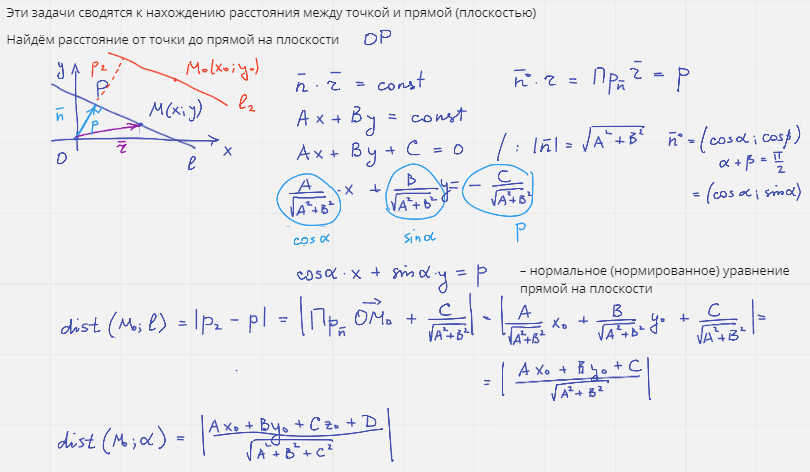 Эти задачи сводятся к нахождению расстояния между точкой и прямой (плоскостью)
Найдём расстояние от точки до прямой на плоскости OP
y P₂ M₀(x₀; y₀) l₂
P M(x; y)
n̅ p r̅
O l x
n̅ · r̅ = const
n̅° · r = Пр_n̅ r̅ = p
Ax + By = const
Ax + By + C = 0 / : |n̅| = √(A² + B²) n̅° = (cosα; cosβ)
α + β = π/2
= (cosα; sinα)
A/√(A²+B²) · x + B/√(A²+B²) y = − C/√(A²+B²)
cosα sinα p
cosα · x + sinα · y = p – нормальное (нормированное) уравнение
прямой на плоскости
dist (M₀; l) = |p₂ − p| = |Пр_n̅ OM₀ + C/√(A²+B²)| = |A/√(A²+B²) x₀ + B/√(A²+B²) y₀ + C/√(A²+B²)| =
= |(Ax₀ + By₀ + C)/√(A²+B²)|
dist (M₀; α) = |(Ax₀ + By₀ + Cz₀ + D)/√(A² + B² + C²)|